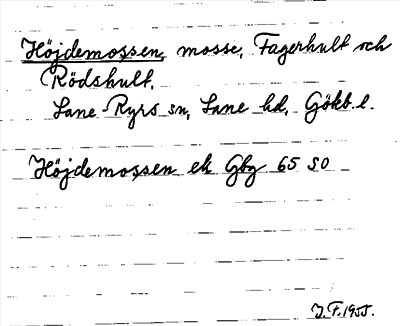 Höjdemossen, mosse, Fagerhult och
Rödshult,
Lane-Ryrs sn, Lane hd, Gökb. l.
Höjdemossen ek Gbg 65 SO
J.F. 1955.